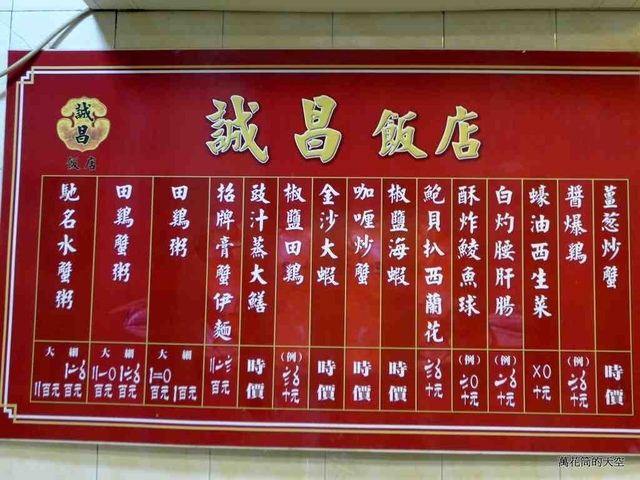 誠昌飯店
誠昌
飯店
薑葱炒蟹
時價
醬爆鷄
(例)
十元
蠔油西生菜
十元
白灼腰肝腸
(例)
十元
酥炸鯪魚球
(例)
十元
鮑貝扒西蘭花
十元
椒鹽海蝦
時價
咖喱炒蟹
時價
金沙大蝦
時價
椒鹽田鷄
(例)
十元
豉汁蒸大鱔
時價
招牌膏蟹伊麵
百元
田鷄粥
細
百元
大
百元
田鷄蟹粥
細
百元
大
百元
馳名水蟹粥
細
百元
大
百元
萬花筒的天空